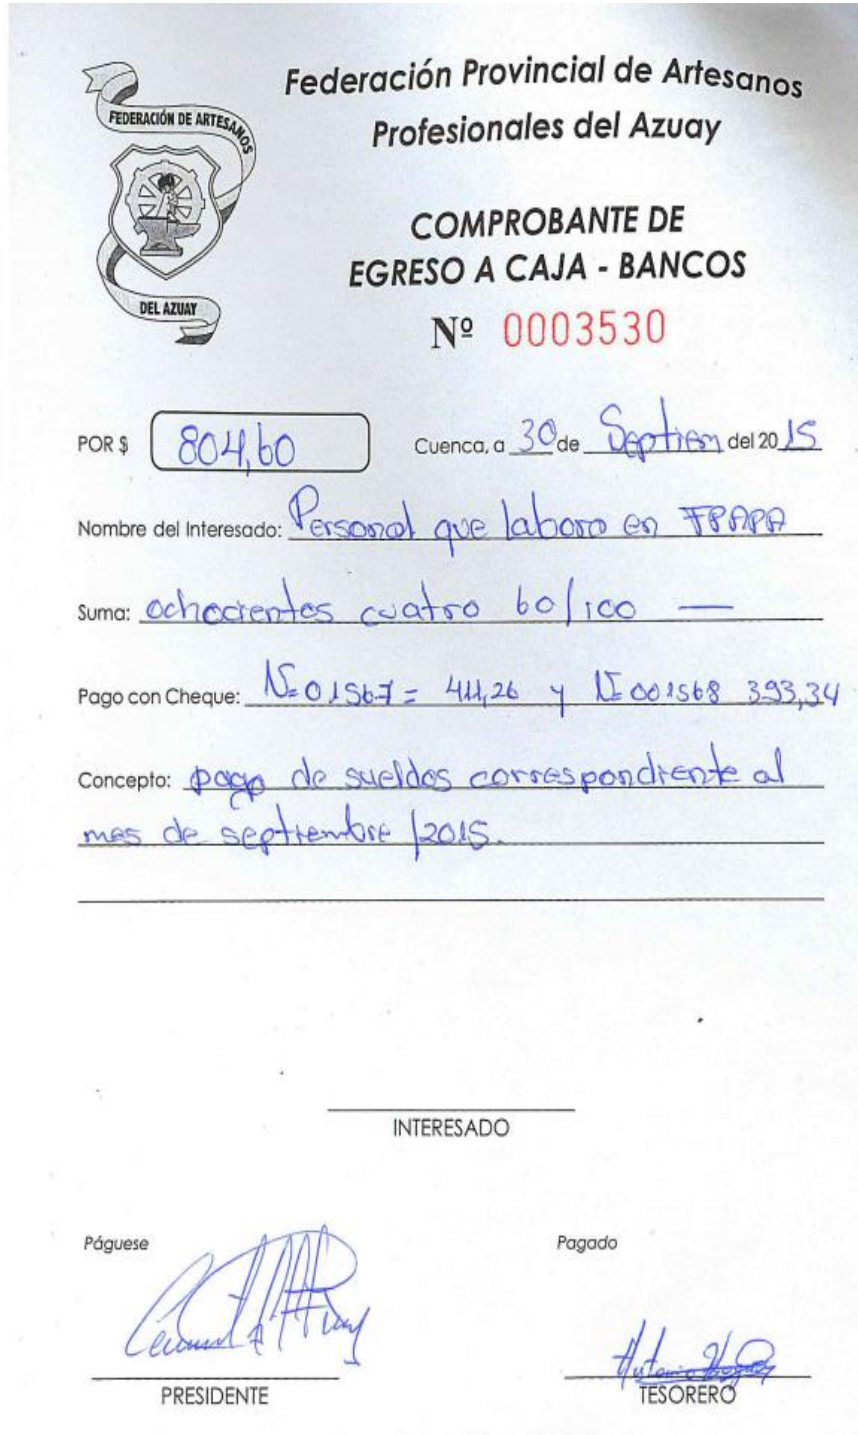 Federación Provincial de Artesanos
Profesionales del Azuay
FEDERACIÓN DE ARTESANOS
DEL AZUAY
COMPROBANTE DE
EGRESO A CAJA - BANCOS
Nº 0003530
POR $ 804,60 Cuenca, a 30 de Septiem del 2015
Nombre del Interesado: Personal que laboro en FPAPA
Suma: ochocientos cuatro 60/100 —
Pago con Cheque: Nº 01567 = 411,26 y Nº 001568 393,34
Concepto: pago de sueldos correspondiente al
mes de septiembre /2015.
INTERESADO
Páguese Pagado
PRESIDENTE TESORERO